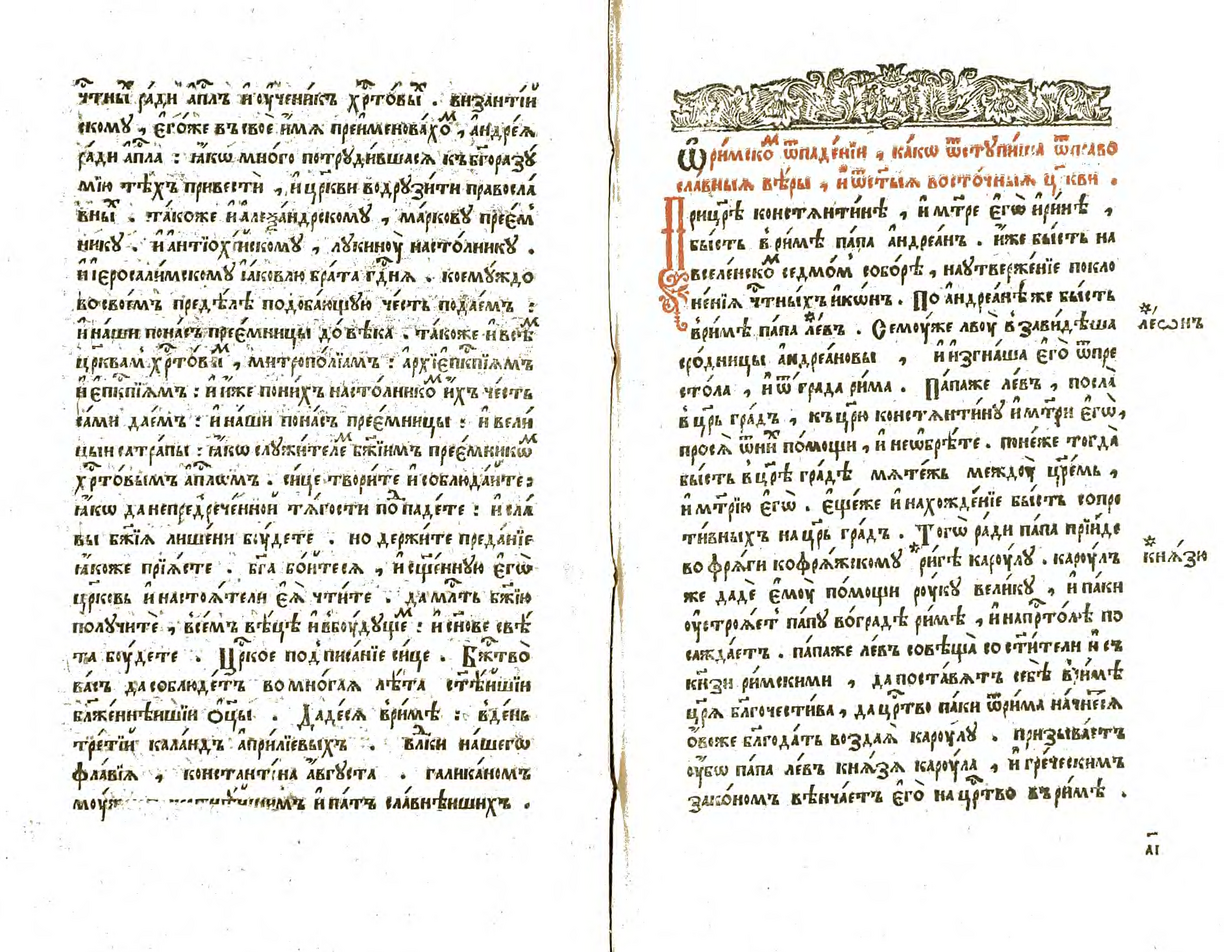 чⷭ҇тныⷯ ра́ди а҆пⷭ҇лъ и҆ оу҆чени́къ хрⷭ҇то́выⷯ . византі́й
скому , є҆го́же въ своѐ и҆́мѧ преименова́хоⷨ , а҆ндре́ѧ
ра́ди а҆пⷭ҇ла : ꙗ҆́кѡ мно́го потруди́вшасѧ къ бг҃оразу́
мїю тѣ́хъ привестѝ , и҆ цр҃кви водрузи́ти правосла́
вныⷯ . та́коже и҆ а҆леѯа́ндрскому , ма́ркову преє́м
нику . и҆ а҆нтїохі́йскому , лукиноу̀ насто́лнику .
и҆ і҆еросали́мскому і҆а́ковлю бра́та гдⷭ҇нѧ . коему́ждо
во свое́мъ предѣ́лѣ подоба́ющую че́сть подае́мъ :
и҆ на́ши по на́съ прее́мницы до вѣ́ка . та́коже и҆ всѣⷨ
цр҃квамъ хрⷭ҇то́выⷨ , митропо́лїамъ : а҆рхїє҆пкⷭ҇пїѧмъ
и҆ є҆пкⷭ҇пїѧмъ : и҆ и҆́же по ни́хъ насто́лникоⷨ и҆́хъ че́сть
са́ми дае́мъ : и҆ на́ши по на́съ прее́мницы : и҆ вели́
цыи сатра́пы : ꙗ҆́кѡ служи́телеⷨ бж҃їимъ прее́мникиⷨ
хрⷭ҇то́вымъ а҆пⷭ҇лѡмъ . си́це твори́те и҆ соблюда́йте :
ꙗ҆́кѡ да не предрече́нной тѧ́гости по паде́те : и҆ сла́
вы бж҃їѧ лише́ни бу́дете . но держи́те преда́нїе
ꙗ҆́коже прїѧ́сте . бг҃а бо́йтесѧ , и҆ сщ҃е́нную є҆гѡ̀
цр҃ковь и҆ настоѧ́тели є҆ѧ̀ чти́те . да млⷭ҇ть бж҃їю
полу́чите , все́мъ вѣ́це и҆ в бу́дущеⷨ : и҆ сн҃ове свѣ́
та бу́дете . Цр҃кое под писа́нїе си́це . Бжⷭ҇тво̀
ва́съ да соблюде́тъ во мно́гаѧ лѣ́та ст҃ѣ́ишїи
бл҃же́ннѣишїи ѻ҆ц҃ы̀ . Даде́сѧ в ри́мѣ : в де́нь
тре́тїи кала́ндъ а҆при́лїевыхъ . влⷣки на́шегѡ
фла́вїѧ , константі́на а҆́вгуста . галика́номъ
и҆ па́тъ сла́внѣишихъ .
Ѡ҆ ри́мскоⷨ ѿпаде́нїи , ка́кѡ ѿступи́ша ѿ право
сла́вныѧ вѣ́ры , и҆ ѿ ст҃ы́ѧ восто́чныѧ цр҃кви .
При цр҃ѣ̀ констѧнти́нѣ , и҆ мт҃ре є҆гѡ̀ и҆ри́нѣ ,
бы́сть в ри́мѣ па́па а҆ндреа́нъ . и҆́же бы́сть на
вселе́нскоⷨ седмо́м̾ собо́рѣ , на утверже́нїе покло
не́нїѧ чⷭ҇тны́хъ и҆ко́нъ . По а҆ндреа́нѣ же бы́сть
в ри́мѣ па́па *ле́въ . Семоу́же лвоу̀ в завидѣ́ша
сро́дницы а҆ндреа́новы , и҆ и҆згна́ша є҆го̀ ѿ пре
сто́ла , и҆ ѿ гра́да ри́ма . Па́па же ле́въ , посла̀
в цр҃ь гра́дъ , къ цр҃ю̀ констѧнти́ну и҆ мт҃ри є҆гѡ̀,
просѧ̀ ѿ ни́хⷯ по́мощи , и҆ не ѡ҆брѣ́те . поне́же тогда̀
бы́сть в цр҃ѣ гра́дѣ мѧте́жь междоу̀ цр҃е́мь ,
и҆ мт҃рїю є҆гѡ̀ . Є҆ще́же и҆ нахожде́нїе бы́сть сопро
ти́вныхъ на цр҃ь гра́дъ . Тогѡ̀ ра́ди па́па прїи́де
во фрѧ́ги ко фрѧ́жскому *ри́гѣ кароу́лу . кароу́лъ
же дадѐ є҆моу̀ по́мощи роу́ку вели́ку , и҆ па́ки
оу҆строѧ́етъ па́пу во гра́дѣ ри́мѣ , и҆ на прⷭ҇то́лѣ по
сажда́етъ . па́па же ле́въ совѣща̀ со ст҃и́тели и҆ съ
кн҃зи ри́мскими , да поста́вѧтъ себѣ̀ в ри́мѣ
цр҃ѧ̀ бл҃гочести́ва , да црⷭ҇тво па́ки ѿ ри́ма на́чнетсѧ
ѻ҆́воже бл҃года́ть воздаѧ̀ кароу́лу . призыва́етъ
оу҆́бѡ па́па ле́въ кнѧ́зѧ кароу́ла , и҆ гре́ческимъ
зако́номъ вѣнча́етъ є҆го̀ на црⷭ҇тво въ ри́мѣ .
* ле́ѡнъ
* кнѧ́зю
а҃і